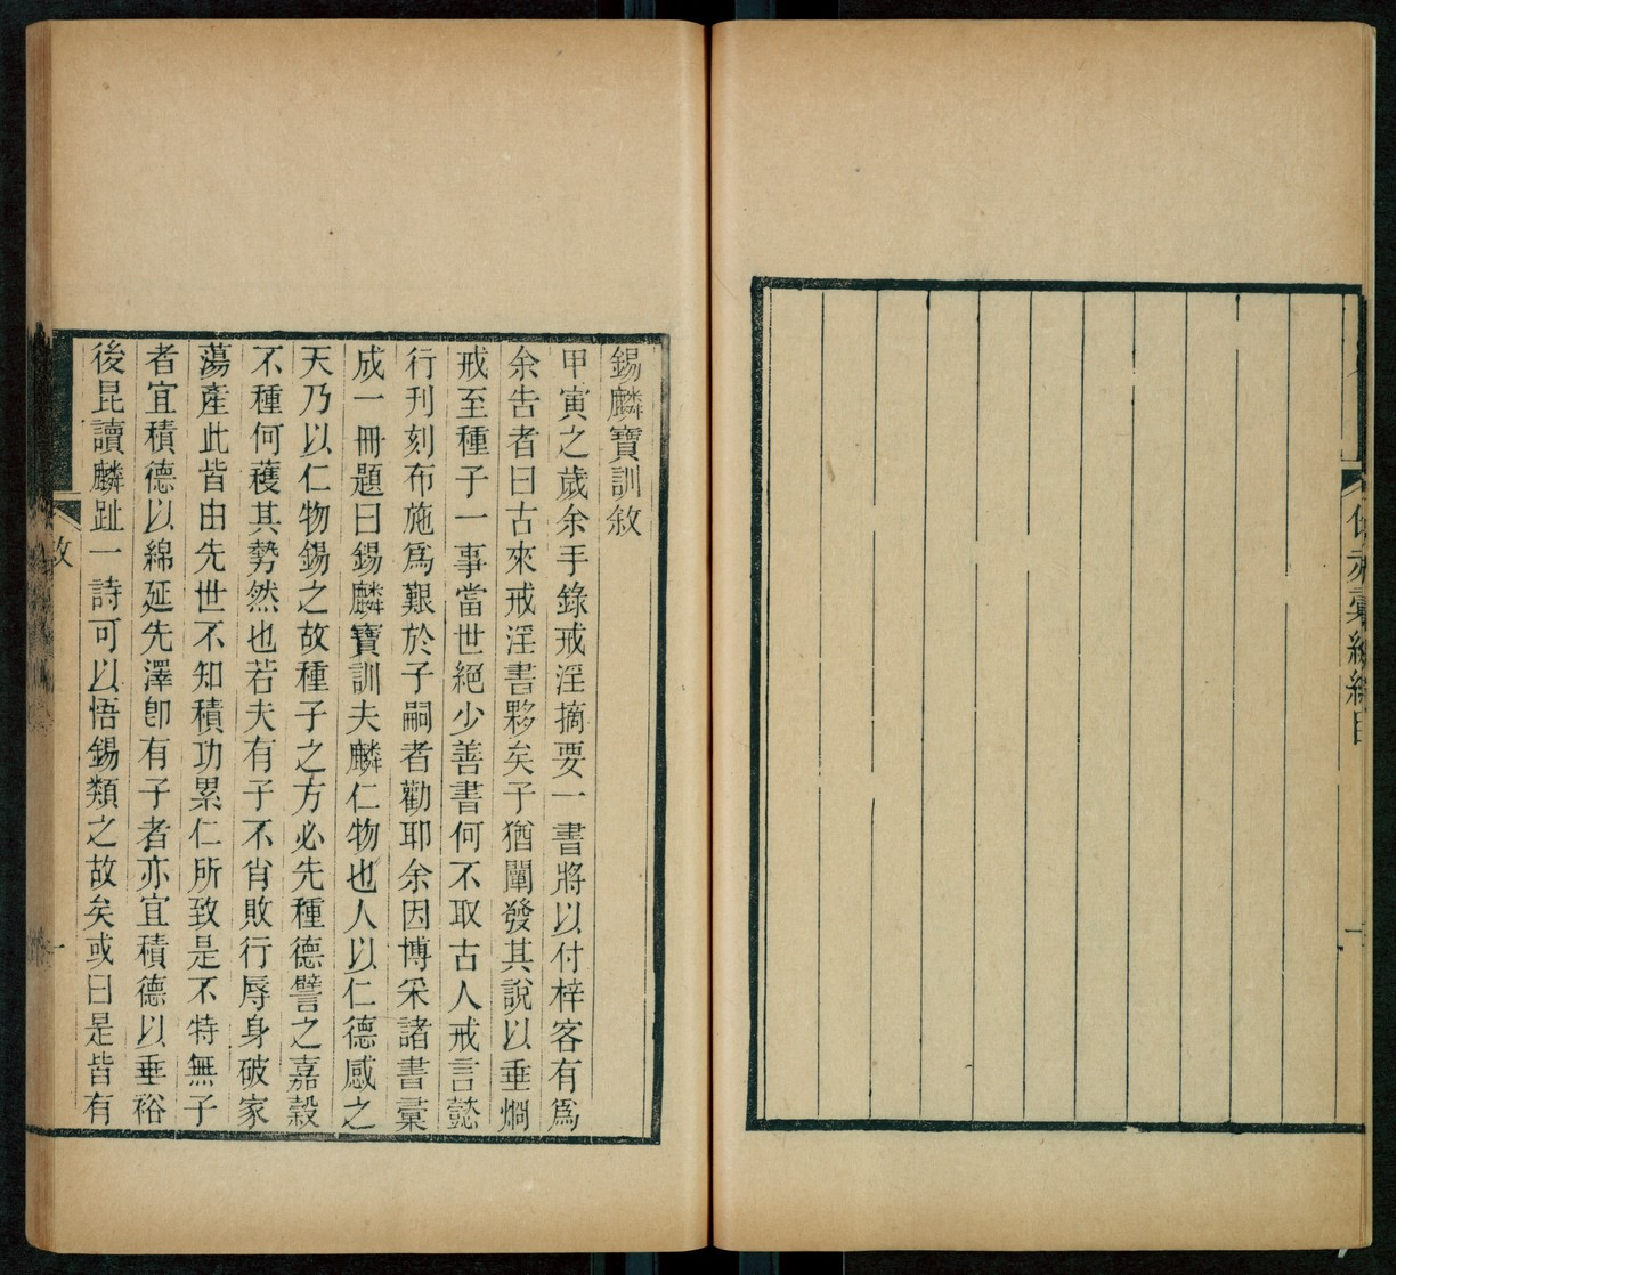 保赤彙編總目
一
錫麟寶訓敘
甲寅之歲余手錄戒淫摘要一書將以付梓客有爲
余告者曰古來戒淫書夥矣子猶闡發其說以垂烱
戒至種子一事當世絕少善書何不取古人戒言懿
行刊刻布施爲艱於子嗣者勸耶余因博采諸書彙
成一冊題曰錫麟寶訓夫麟仁物也人以仁德感之
天乃以仁物錫之故種子之方必先種德譬之嘉穀
不種何穫其勢然也若夫有子不肖敗行辱身破家
蕩產此皆由先世不知積功累仁所致是不特無子
者宜積德以綿延先澤卽有子者亦宜積德以垂裕
後昆讀麟趾一詩可以悟錫類之故矣或曰是皆有
敘
一